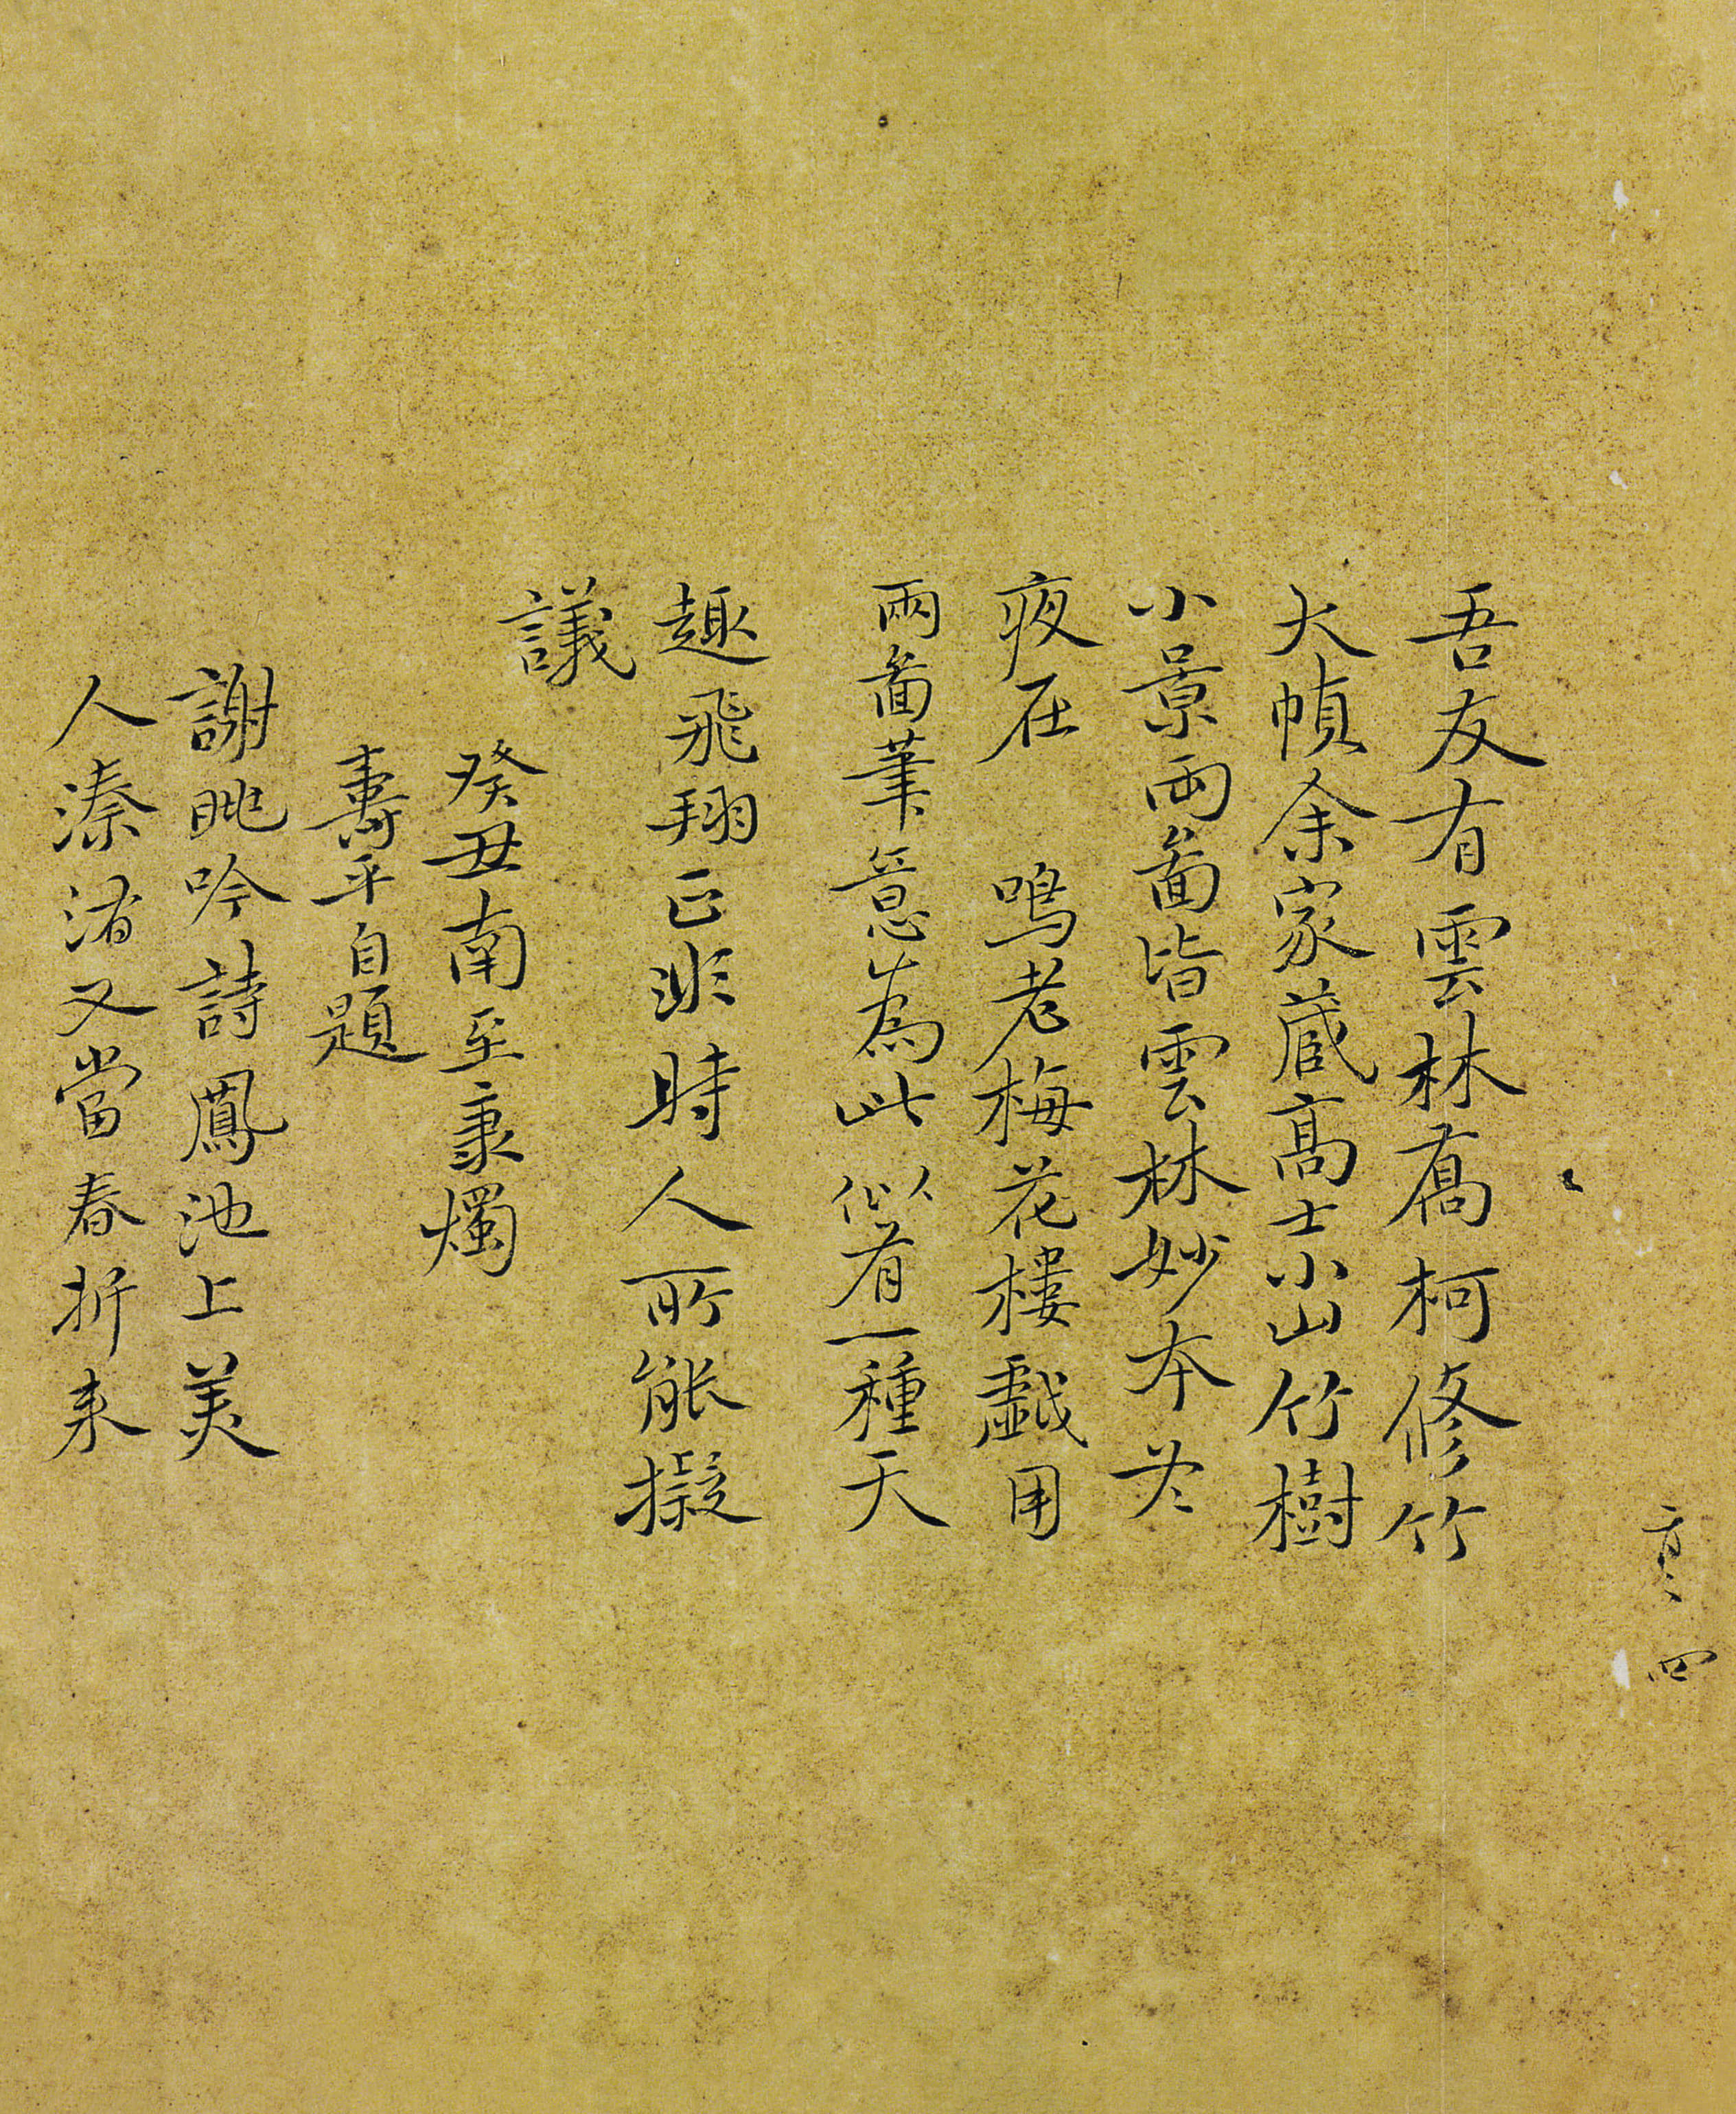 吾友有雲林喬柯修竹
大幀余家藏高士小山竹樹
小景兩啚皆雲林妙本苶
夜在 鳴老梅花樓戱用
兩啚筆意為此似有一種天
趣飛翔正非時人所能擬
議
癸丑南至秉燭
壽平自題
謝眺吟詩鳳池上美
人溱洧又當春折来
四